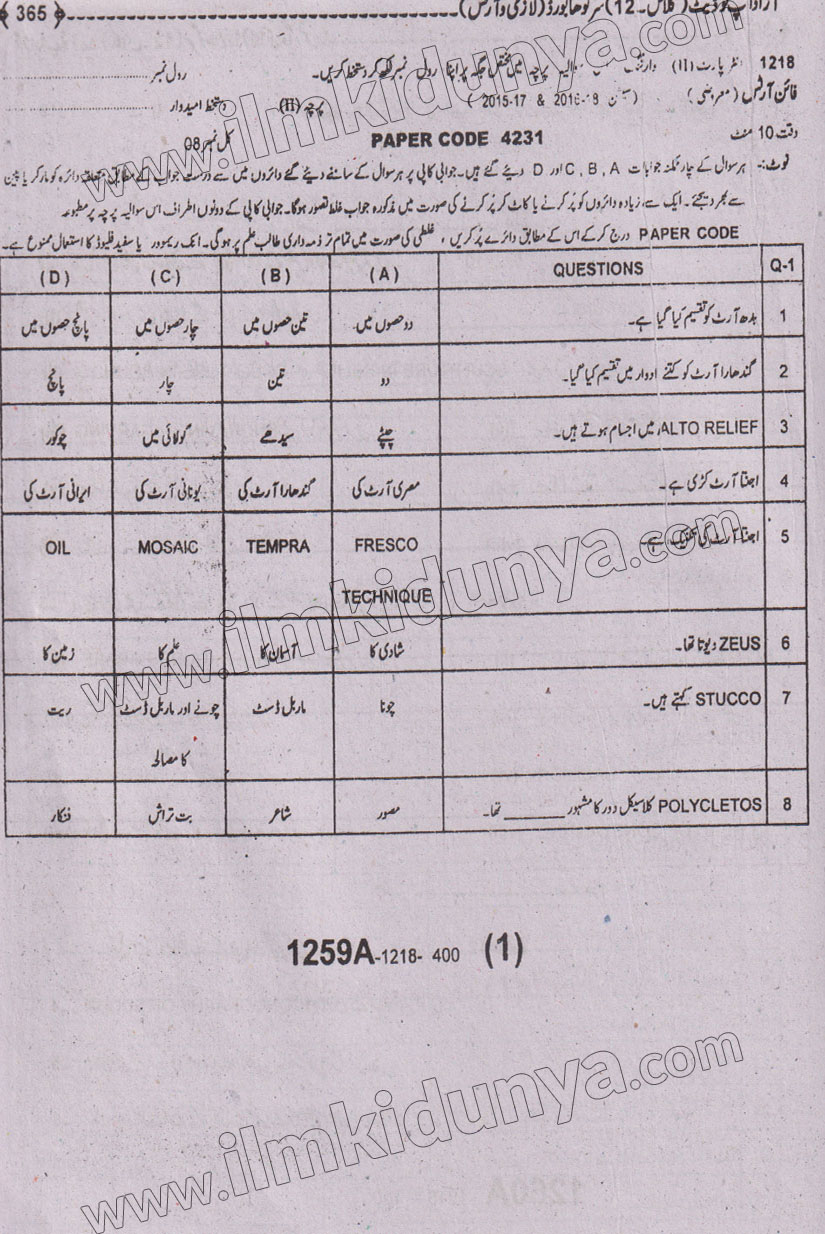 ﴾ 365 ﴿ اَپ ٹو ڈیٹ (کلاس۔12) سرگودھا بورڈ (لازمی و آرٹس)
1218 انٹر پارٹ (II) وارننگ پرچہ میں مختص جگہ پر اپنا رول نمبر لکھ کر دستخط کریں۔ رول نمبر
فائن آرٹس (معروضی) (2015-17 & 2016-18) پرچہ (II) دستخط امیدوار
وقت 10 منٹ PAPER CODE 4231 کل نمبر 08
نوٹ:- ہر سوال کے چار ممکنہ جوابات A , B , C اور D دیئے گئے ہیں۔ جوابی کاپی پر ہر سوال کے سامنے دیئے گئے دائروں میں سے درست جواب کے مطابق متعلقہ دائرہ کو مارکر یا پین
سے بھر دیجئے۔ ایک سے زیادہ دائروں کو پُر کرنے یا کاٹ کر پُر کرنے کی صورت میں مذکورہ جواب غلط تصور ہوگا۔ جوابی کاپی کے دونوں اطراف اس سوالیہ پرچہ پر مطبوعہ
PAPER CODE درج کر کے اس کے مطابق دائرے پُر کریں، غلطی کی صورت میں تمام تر ذمہ داری طالب علم پر ہوگی۔ انک ریموور یا سفید فلیوڈ کا استعمال ممنوع ہے۔
Q-1 QUESTIONS ( A ) ( B ) ( C ) ( D )
1 بدھ آرٹ کو تقسیم کیا گیا ہے۔ دو حصوں میں۔ تین حصوں میں چار حصوں میں پانچ حصوں میں
2 گندھارا آرٹ کو کتنے ادوار میں تقسیم کیا گیا۔ دو تین چار پانچ
3 ALTO RELIEF میں اجسام ہوتے ہیں۔ چپٹے سیدھے گولائی میں چوکور
4 اجنتا آرٹ کڑی ہے۔ مصری آرٹ کی گندھارا آرٹ کی یونانی آرٹ کی ایرانی آرٹ کی
5 اجنتا آرٹ کی تکنیک ہے۔ FRESCO TEMPRA MOSAIC OIL
TECHNIQUE
6 ZEUS دیوتا تھا۔ شادی کا آسمان کا علم کا زمین کا
7 STUCCO کہتے ہیں۔ چونا ماربل ڈسٹ چونے اور ماربل ڈسٹ ریت
کا مصالحہ
8 POLYCLETOS کلاسیکل دور کا مشہور ________ تھا۔ مصور شاعر بت تراش فنکار
1259A-1218- 400 (1)
www.ilmkidunya.com
www.ilmkidunya.com
www.ilmkidunya.com